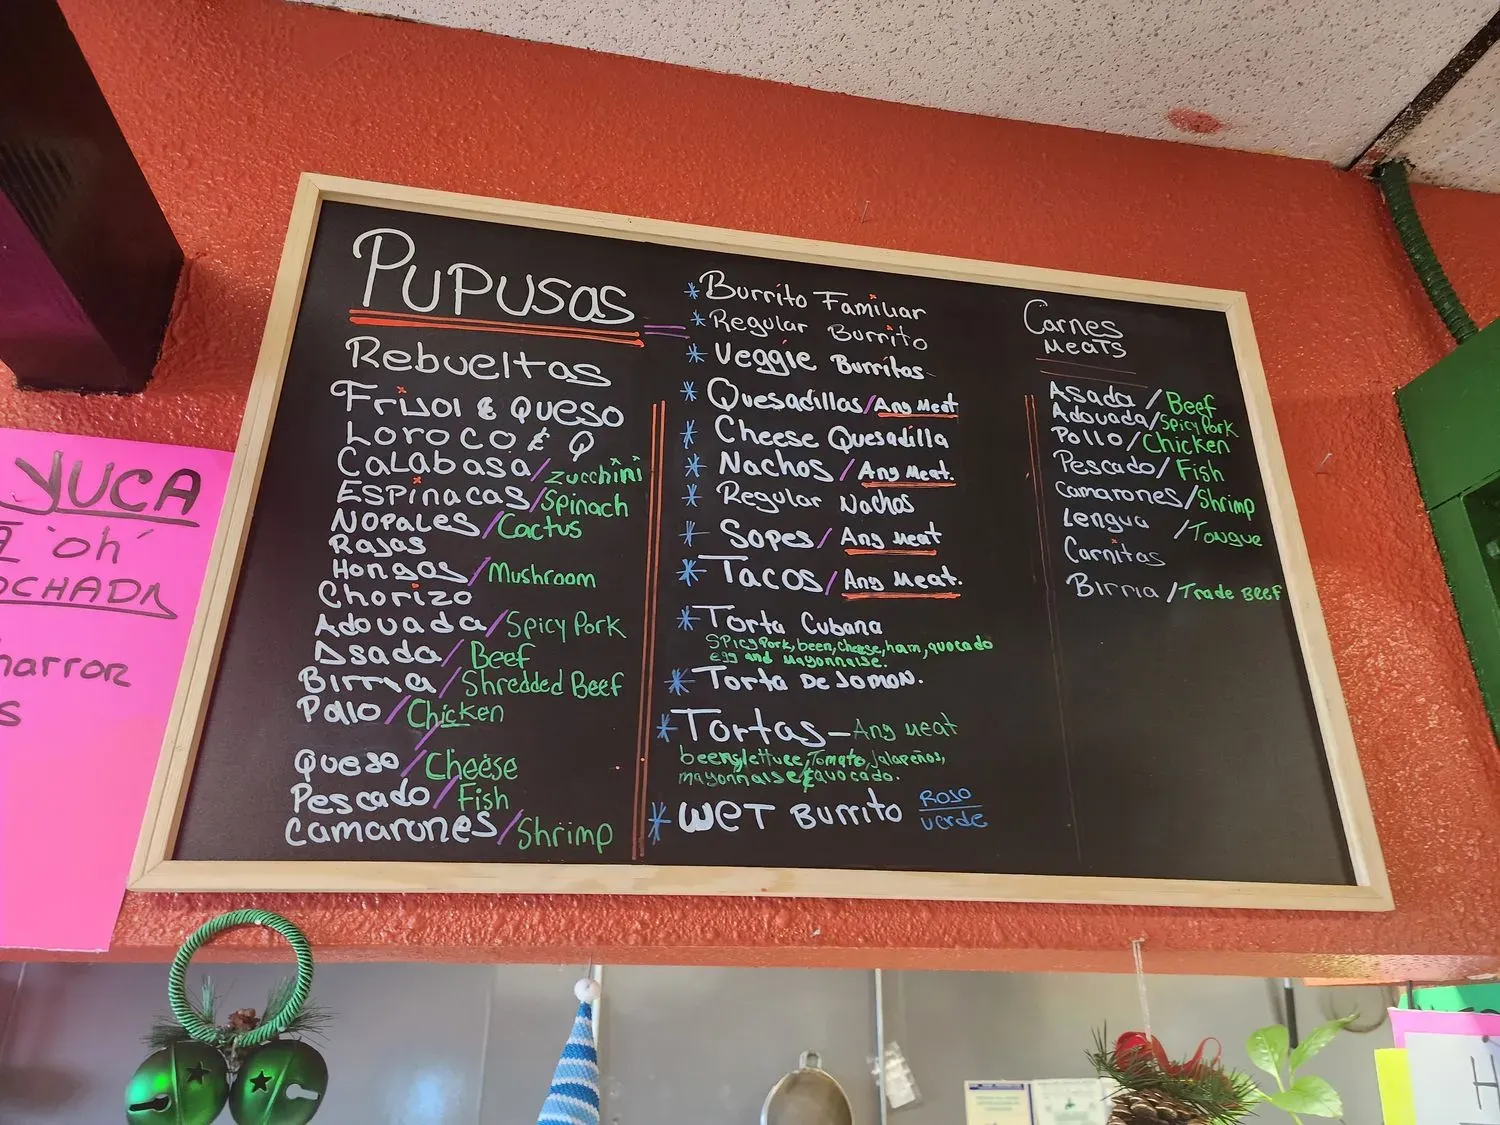 PUPUSAS
Rebueltas
Frijol & QUESO
LOROCO & Q
CALABASA/zucchini
ESPINACAS/Spinach
NOPALES/Cactus
RAJAS
Hongos/Mushroom
Chorizo
Adovada/Spicy Pork
Asada/Beef
Birria/Shredded Beef
Pollo/Chicken
Queso/Cheese
Pescado/Fish
Camarones/Shrimp
*Burrito Familiar
*Regular Burrito
*Veggie Burritos
*Quesadillas/Any Meat
*Cheese Quesadilla
*Nachos/Any Meat.
*Regular Nachos
*Sopes/Any Meat
*Tacos/Any Meat.
*Torta Cubana
Spicy Pork, been, cheese, ham, quocado
egg and Mayonnaise.
*Torta De Jomon.
*Tortas-Any Meat
beens, lettuce, Tomato, jalapeños,
mayonnaise & quocado.
*WET Burrito ROJO
verde
Carnes
MEATS
Asada/Beef
Adovada/Spicy Pork
Pollo/Chicken
Pescado/Fish
Camarones/Shrimp
Lengua/Tongue
Carnitas
Birria/Trade BEEF
YUCA
'oh'
OCHADA
harror
S
H